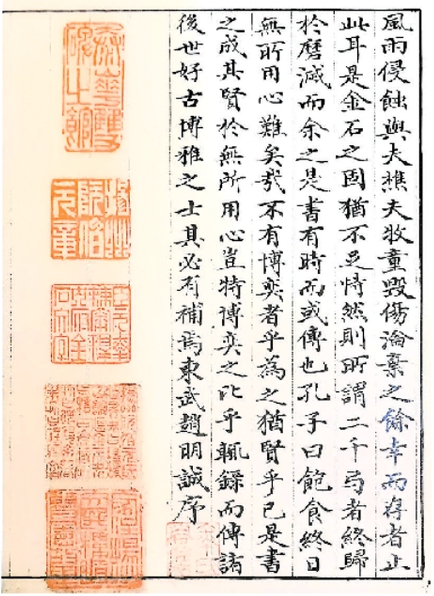 風雨侵蝕與夫樵夫牧童毀傷淪棄之餘幸而存者止
此耳是金石之固猶不足恃然則所謂二千卷者終歸
於磨滅而余之是書有時而或傳也孔子曰飽食終日
無所用心難矣哉不有博奕者乎為之猶賢乎已是書
之成其賢於無所用心豈特博奕之比乎輒録而傳諸
後世好古博雅之士其必有補焉東武趙明誠序
泰華雙碑之館